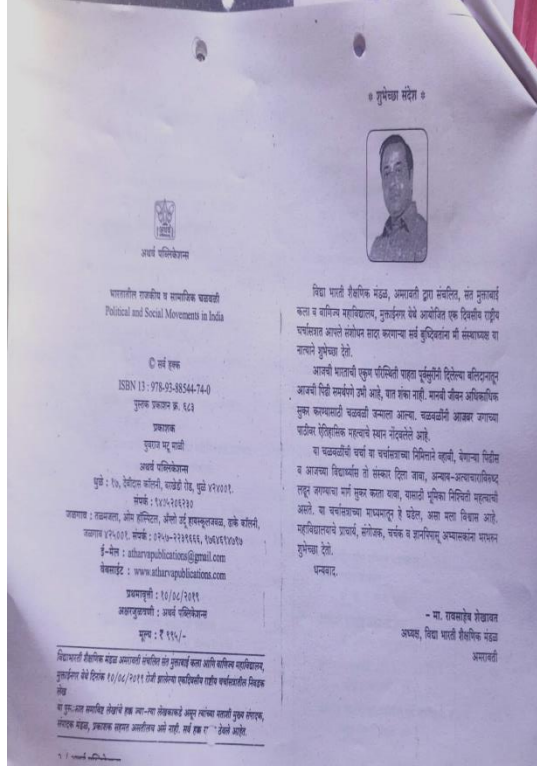 अथर्व पब्लिकेशन्स
भारतातील राजकीय व सामाजिक चळवळी
Political and Social Movements in India
© सर्व हक्क
ISBN 13 : 978-93-88544-74-0
पुस्तक प्रकाशन क्र. ६८३
प्रकाशक
युवराज भटू माळी
अथर्व पब्लिकेशन्स
धुळे : १७, देवीदास कॉलनी, वाखेडी रोड, धुळे ४२४००१.
संपर्क : ९४०५२०६२३०
जळगाव : तळमजला, ओम हॉस्पिटल, अँग्लो उर्दू हायस्कूलजवळ, ढाके कॉलनी,
जळगाव ४२५००१. संपर्क : ०२५७-२२३९६६६, ९७६४६९४७९७
ई-मेल : atharvapublications@gmail.com
वेबसाईट : www.atharvapublications.com
प्रथमावृत्ती : १०/०८/२०१९
अक्षरजुळवणी : अथर्व पब्लिकेशन्स
मूल्य : ₹ ९९५/-
विद्याभारती शैक्षणिक मंडळ अमरावती संचलित संत मुक्ताबाई कला आणि वाणिज्य महाविद्यालय,
मुक्ताईनगर येथे दिनांक १०/०८/२०१९ रोजी झालेल्या एकदिवसीय राष्ट्रीय चर्चासत्रातील निवडक
लेख
या समाविष्ट लेखांचे हक्क ज्या-त्या लेखकाकडे असून त्यांच्या मताशी मुख्य संपादक,
संपादक मंडळ, प्रकाशक सहमत असतीलच असे नाही. सर्व हक्क ठेवले आहेत.
* शुभेच्छा संदेश *
विद्या भारती शैक्षणिक मंडळ, अमरावती द्वारा संचलित, संत मुक्ताबाई
कला व वाणिज्य महाविद्यालय, मुक्ताईनगर येथे आयोजित एक दिवसीय राष्ट्रीय
चर्चासत्रात आपले संशोधन सादर करणाऱ्या सर्व बुध्दिवंतांना मी संस्थाध्यक्ष या
नात्याने शुभेच्छा देतो.
आजची भारताची एकुण परिस्थिती पाहता पूर्वसुरींनी दिलेल्या बलिदानातून
आजची पिढी समर्थपणे उभी आहे, यात शंका नाही. मानवी जीवन अधिकाधिक
सुकर करण्यासाठी चळवळी जन्माला आल्या. चळवळींनी आजवर जगाच्या
पाठीवर ऐतिहासिक महत्वाचे स्थान नोंदवलेले आहे.
या चळवळींची चर्चा या चर्चासत्राच्या निमित्ताने व्हावी, येणाऱ्या पिढीस
व आजच्या विद्यार्थ्यास तो संस्कार दिला जावा, अन्याय-अत्याचाराविरुध्द
लढून जगण्याचा मार्ग सुकर करता यावा, यासाठी भूमिका निश्चिती महत्वाची
असते. या चर्चासत्राच्या माध्यमातून हे घडेल, असा मला विश्वास आहे.
महाविद्यालयाचे प्राचार्य, संयोजक, चर्चक व ज्ञानपिपासू अभ्यासकांना भरभरुन
शुभेच्छा देतो.
धन्यवाद.
- मा. रावसाहेब शेखावत
अध्यक्ष, विद्या भारती शैक्षणिक मंडळ
अमरावती